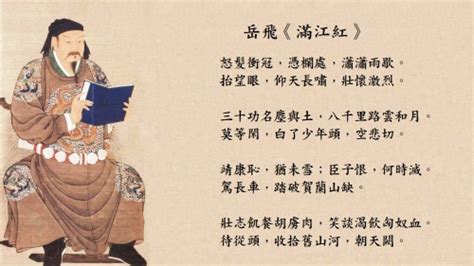 岳飛《滿江紅》
怒髮衝冠，憑欄處，瀟瀟雨歇。
抬望眼，仰天長嘯，壯懷激烈。
三十功名塵與土，八千里路雲和月。
莫等閑，白了少年頭，空悲切。
靖康恥，猶未雪；臣子恨，何時滅。
駕長車，踏破賀蘭山缺。
壯志飢餐胡虜肉，笑談渴飲匈奴血。
待從頭，收拾舊山河，朝天闕。